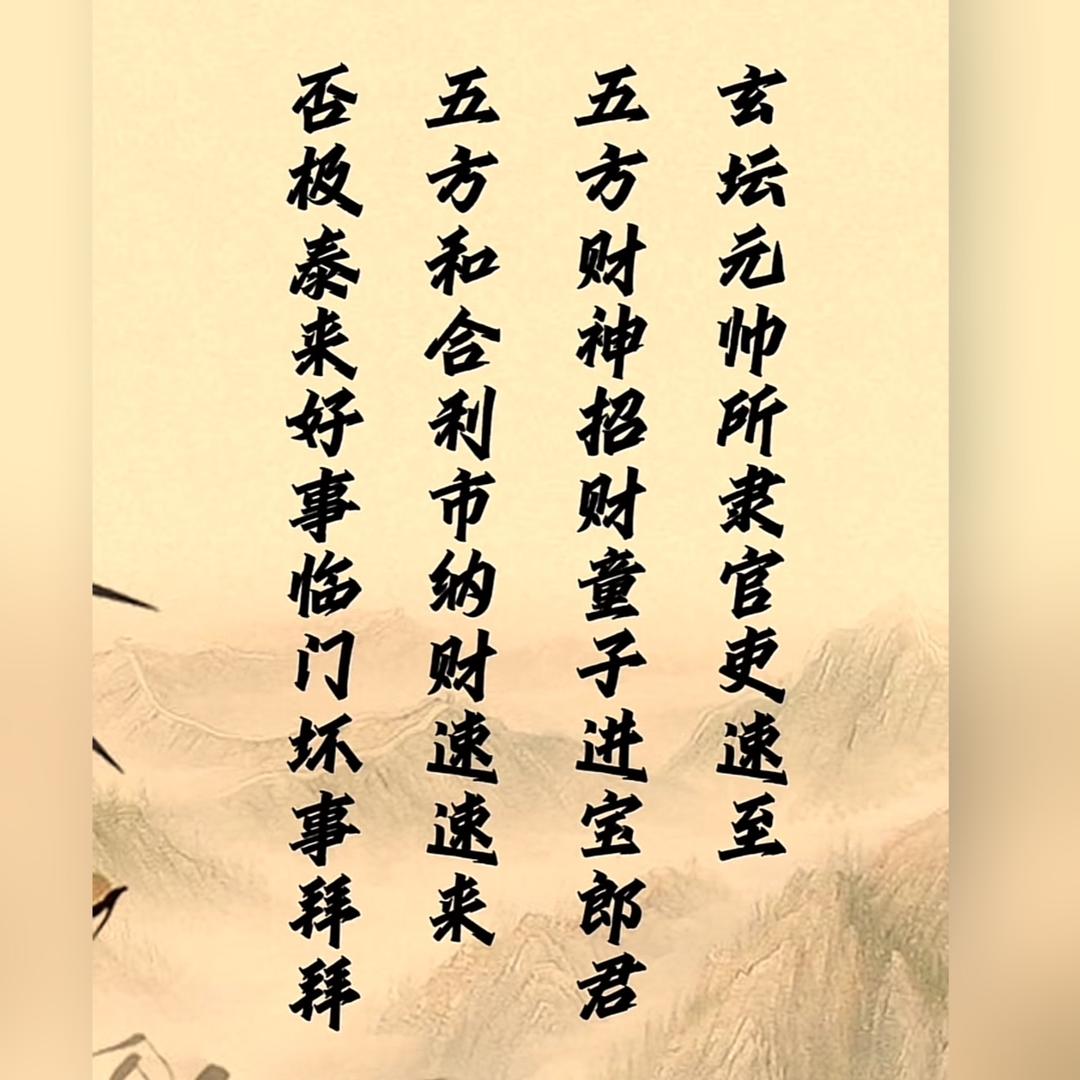 玄坛元帅所隶官吏速至
五方财神招财童子进宝郎君
五方和合利市纳财速速来
否极泰来好事临门坏事拜拜